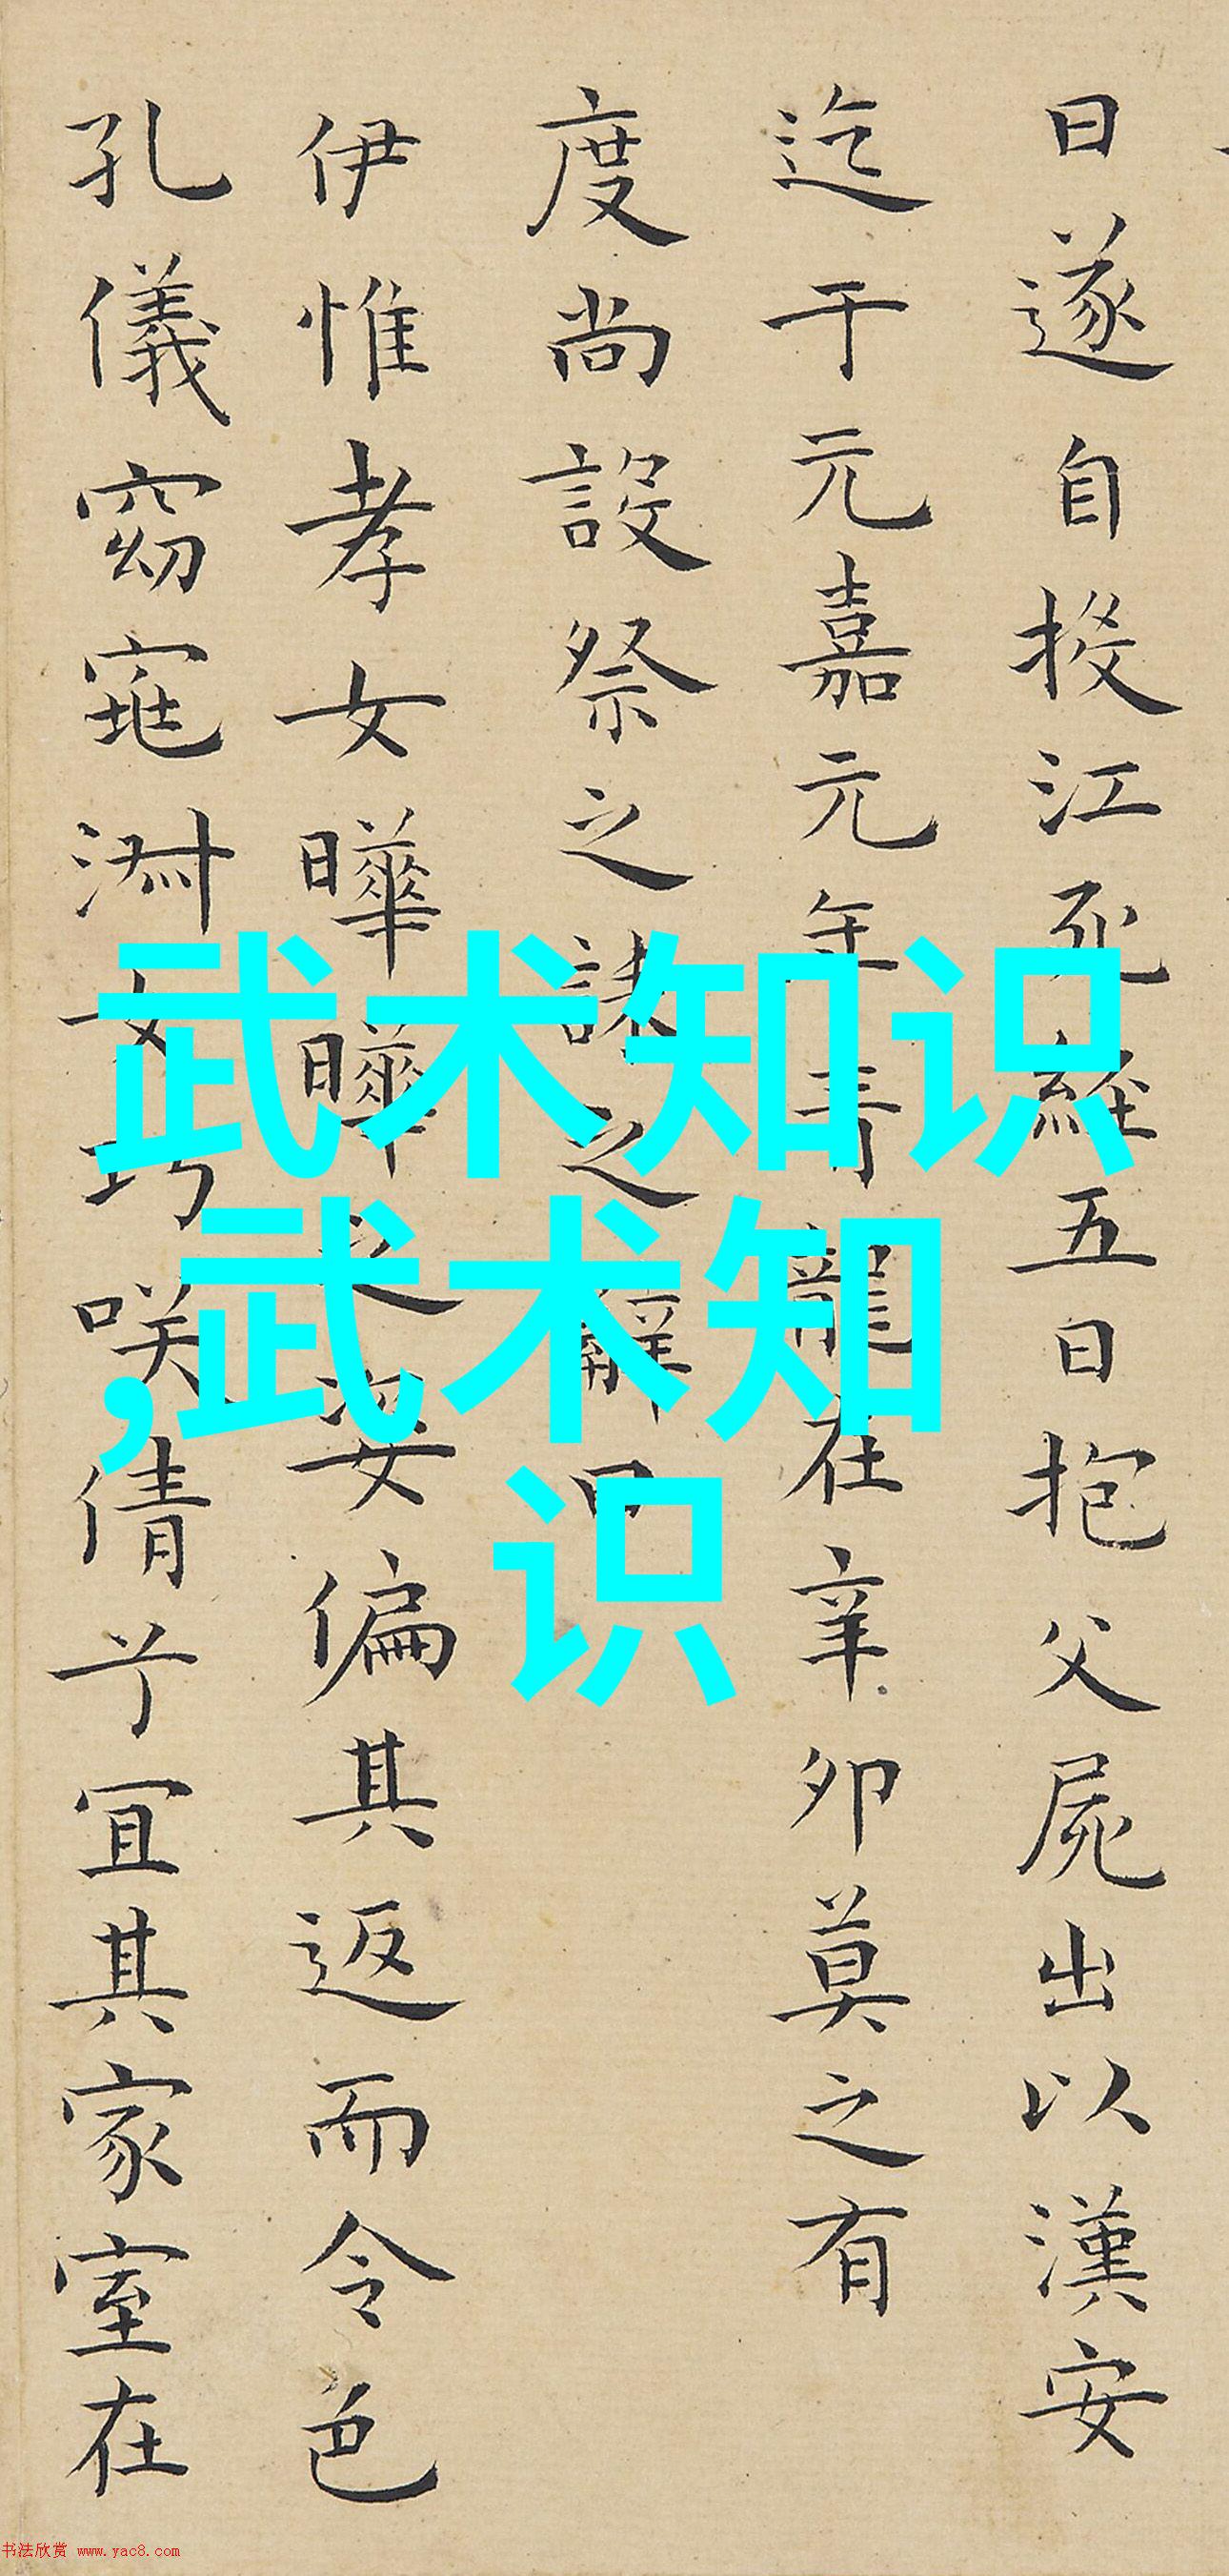 日遂自投江死經五日抱父屍出以漢安
迄于元嘉元年青龍在辛卯莫之有
度尚設祭之誄之辭曰
伊惟孝女曄曄之姿偏其返而令色
孔儀窈窕淑女巧咲倩兮宜其家室在
武术知识
,武术知
识
书法欣赏 www.yac8.com